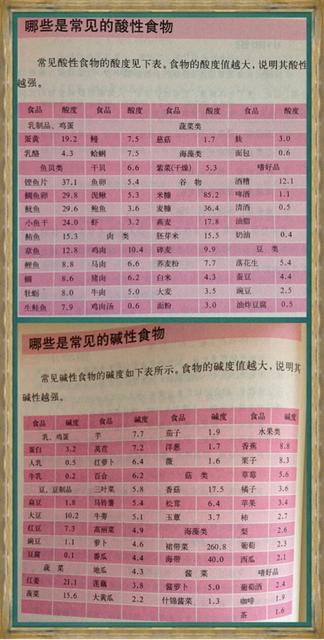 哪些是常见的酸性食物
常见酸性食物的酸度见下表。食物的酸度值越大，说明其酸性
越强。
食品 酸度 食品 酸度 食品 酸度 食品 酸度
乳制品、鸡蛋 蔬菜类
蛋黄 19.2 鳗 7.5 慈菇 1.7 麸 3.0
乳酪 4.3 蛤蜊 7.5 海藻类 面包 0.6
鱼贝类 干贝 6.6 紫菜(干燥) 5.3 嗜好品
鲣鱼片 37.1 鱼卵 5.4 谷物 酒糟 12.1
鲷鱼卵 29.8 泥鳅 5.3 米糠 85.2 啤酒 1.1
鱿鱼 29.6 鲍鱼 3.6 麦糠 36.4 清酒 0.5
小鱼干 24.0 虾 3.2 燕麦 17.8 油脂
鲔鱼 15.3 肉类 胚芽米 15.5 奶油 0.4
章鱼 12.8 鸡肉 10.4 碎麦 9.9 豆类
鲤鱼 8.8 马肉 6.6 荞麦粉 7.7 落花生 5.4
鲷 8.6 猪肉 6.2 白米 4.3 蚕豆 4.4
牡蛎 8.0 牛肉 5.0 大麦 3.5 豌豆 2.5
生鲑鱼 7.9 鸡肉汤 0.6 面粉 3.0 油炸豆腐 0.5
哪些是常见的碱性食物
常见碱性食物的碱度如下表所示。食物的碱度值越大，说明其
碱性越强。
食品 碱度 食品 碱度 食品 碱度 食品 碱度
乳、鸡蛋 芋 7.7 茄子 1.9 水果类
蛋白 3.2 莴苣 7.2 洋葱 1.7 香蕉 8.8
人乳 0.5 红萝卜 6.4 1.6 栗子 8.3
牛乳 0.2 百合 6.2 菇类 草莓 5.6
豆、豆制品 三叶菜 5.8 香菇 17.5 橘子 3.6
扁豆 1.8 马铃薯 5.4 松茸 6.4 苹果 3.4
大豆 10.2 牛蒡 5.1 玉蕈 3.7 柿 2.7
红豆 7.3 高丽菜 4.9 海藻类 梨 2.6
豌豆 1.1 萝卜 4.6 裙带菜 260.8 葡萄 2.3
豆腐 0.1 番瓜 4.4 海带 40.0 西瓜 2.1
蔬菜 地瓜 4.3 酱菜 嗜好品
红姜 21.1 莲藕 3.8 酱萝卜 5.0 葡萄酒 2.4
菠菜 15.6 大黄瓜 2.2 什锦酱菜 1.3 咖啡 1.9
茶 1.6